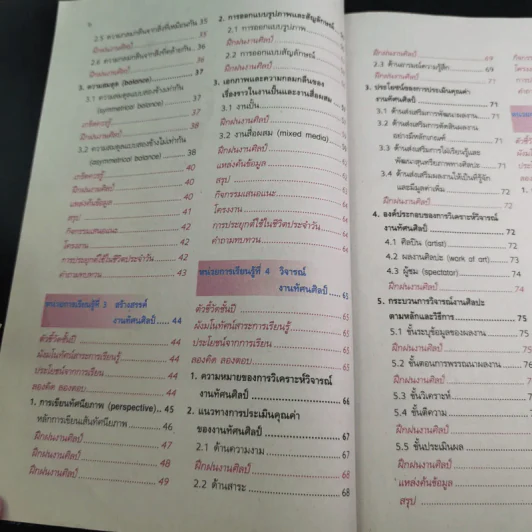 2.5 ความกลมกลืนจากสิ่งที่เหมือนกัน 35
ฝึกฝนงานศิลป์ 35
2.6 ความกลมกลืนจากสิ่งที่คล้ายกัน 36
ฝึกฝนงานศิลป์ 36
3. ความสมดุล (balance) 37
3.1 ความสมดุลแบบสองข้างเท่ากัน
(symmetrical balance) 37
เกร็ดควรรู้ 37
ฝึกฝนงานศิลป์ 38
3.2 ความสมดุลแบบสองข้างไม่เท่ากัน
(asymmetrical balance) 38
เกร็ดควรรู้ 40
ฝึกฝนงานศิลป์ 40
แหล่งค้นข้อมูล 40
สรุป 41
กิจกรรมเสนอแนะ 42
โครงงาน 42
การประยุกต์ใช้ในชีวิตประจำวัน 42
คำถามทบทวน 43
หน่วยการเรียนรู้ที่ 3 สร้างสรรค์
งานทัศนศิลป์ 44
ตัวชี้วัดชั้นปี 44
ผังมโนทัศน์สาระการเรียนรู้ 44
ประโยชน์จากการเรียน 44
ลองคิด ลองตอบ 44
1. การเขียนทัศนียภาพ (perspective) 45
หลักการเขียนเส้นทัศนียภาพ 46
ฝึกฝนงานศิลป์ 47
ฝึกฝนงานศิลป์ 48
ฝึกฝนงานศิลป์ 49
2. การออกแบบรูปภาพและสัญลักษณ์
2.1 การออกแบบรูปภาพ
ฝึกฝนงานศิลป์
2.2 การออกแบบสัญลักษณ์
ฝึกฝนงานศิลป์
3. เอกภาพและความกลมกลืนของ
เรื่องราวในงานปั้นและงานสื่อผสม
3.1 งานปั้น
ฝึกฝนงานศิลป์
3.2 งานสื่อผสม (mixed media)
ฝึกฝนงานศิลป์
แหล่งค้นข้อมูล
สรุป
กิจกรรมเสนอแนะ
โครงงาน
การประยุกต์ใช้ในชีวิตประจำวัน
คำถามทบทวน
หน่วยการเรียนรู้ที่ 4 วิจารณ์
งานทัศนศิลป์ 65
ตัวชี้วัดชั้นปี 65
ผังมโนทัศน์สาระการเรียนรู้ 65
ประโยชน์จากการเรียน 65
ลองคิด ลองตอบ 65
1. ความหมายของการวิเคราะห์วิจารณ์
งานทัศนศิลป์ 66
2. แนวทางการประเมินคุณค่า
ของงานทัศนศิลป์ 67
2.1 ด้านความงาม 67
ฝึกฝนงานศิลป์ 68
2.2 ด้านสาระ 68
ฝึกฝนงานศิลป์ 69
2.3 ด้านอารมณ์ความรู้สึก 69
ฝึกฝนงานศิลป์ 71
3. ประโยชน์ของการประเมินคุณค่า
งานทัศนศิลป์ 71
3.1 ด้านส่งเสริมการพัฒนาผลงาน 71
3.2 ด้านส่งเสริมการตัดสินผลงาน
อย่างมีหลักเกณฑ์ 71
3.3 ด้านส่งเสริมการใฝ่เรียนรู้และ
พัฒนาสุนทรียภาพทางศิลปะ 71
3.4 ด้านส่งเสริมผลงานให้เป็นที่รู้จัก
และมีมูลค่าเพิ่ม 72
ฝึกฝนงานศิลป์ 72
4. องค์ประกอบของการวิเคราะห์วิจารณ์
งานทัศนศิลป์ 72
4.1 ศิลปิน (artist) 72
4.2 ผลงานศิลปะ (work of art) 73
4.3 ผู้ชม (spectator) 74
ฝึกฝนงานศิลป์ 74
5. กระบวนการวิจารณ์งานศิลปะ
ตามหลักและวิธีการ 75
5.1 ขั้นระบุข้อมูลของผลงาน 75
ฝึกฝนงานศิลป์ 75
5.2 ขั้นตอนการพรรณนาผลงาน 76
ฝึกฝนงานศิลป์
5.3 ขั้นวิเคราะห์
5.4 ขั้นตีความ
ฝึกฝนงานศิลป์
5.5 ขั้นประเมินผล
ฝึกฝนงานศิลป์
แหล่งค้นข้อมูล
สรุป